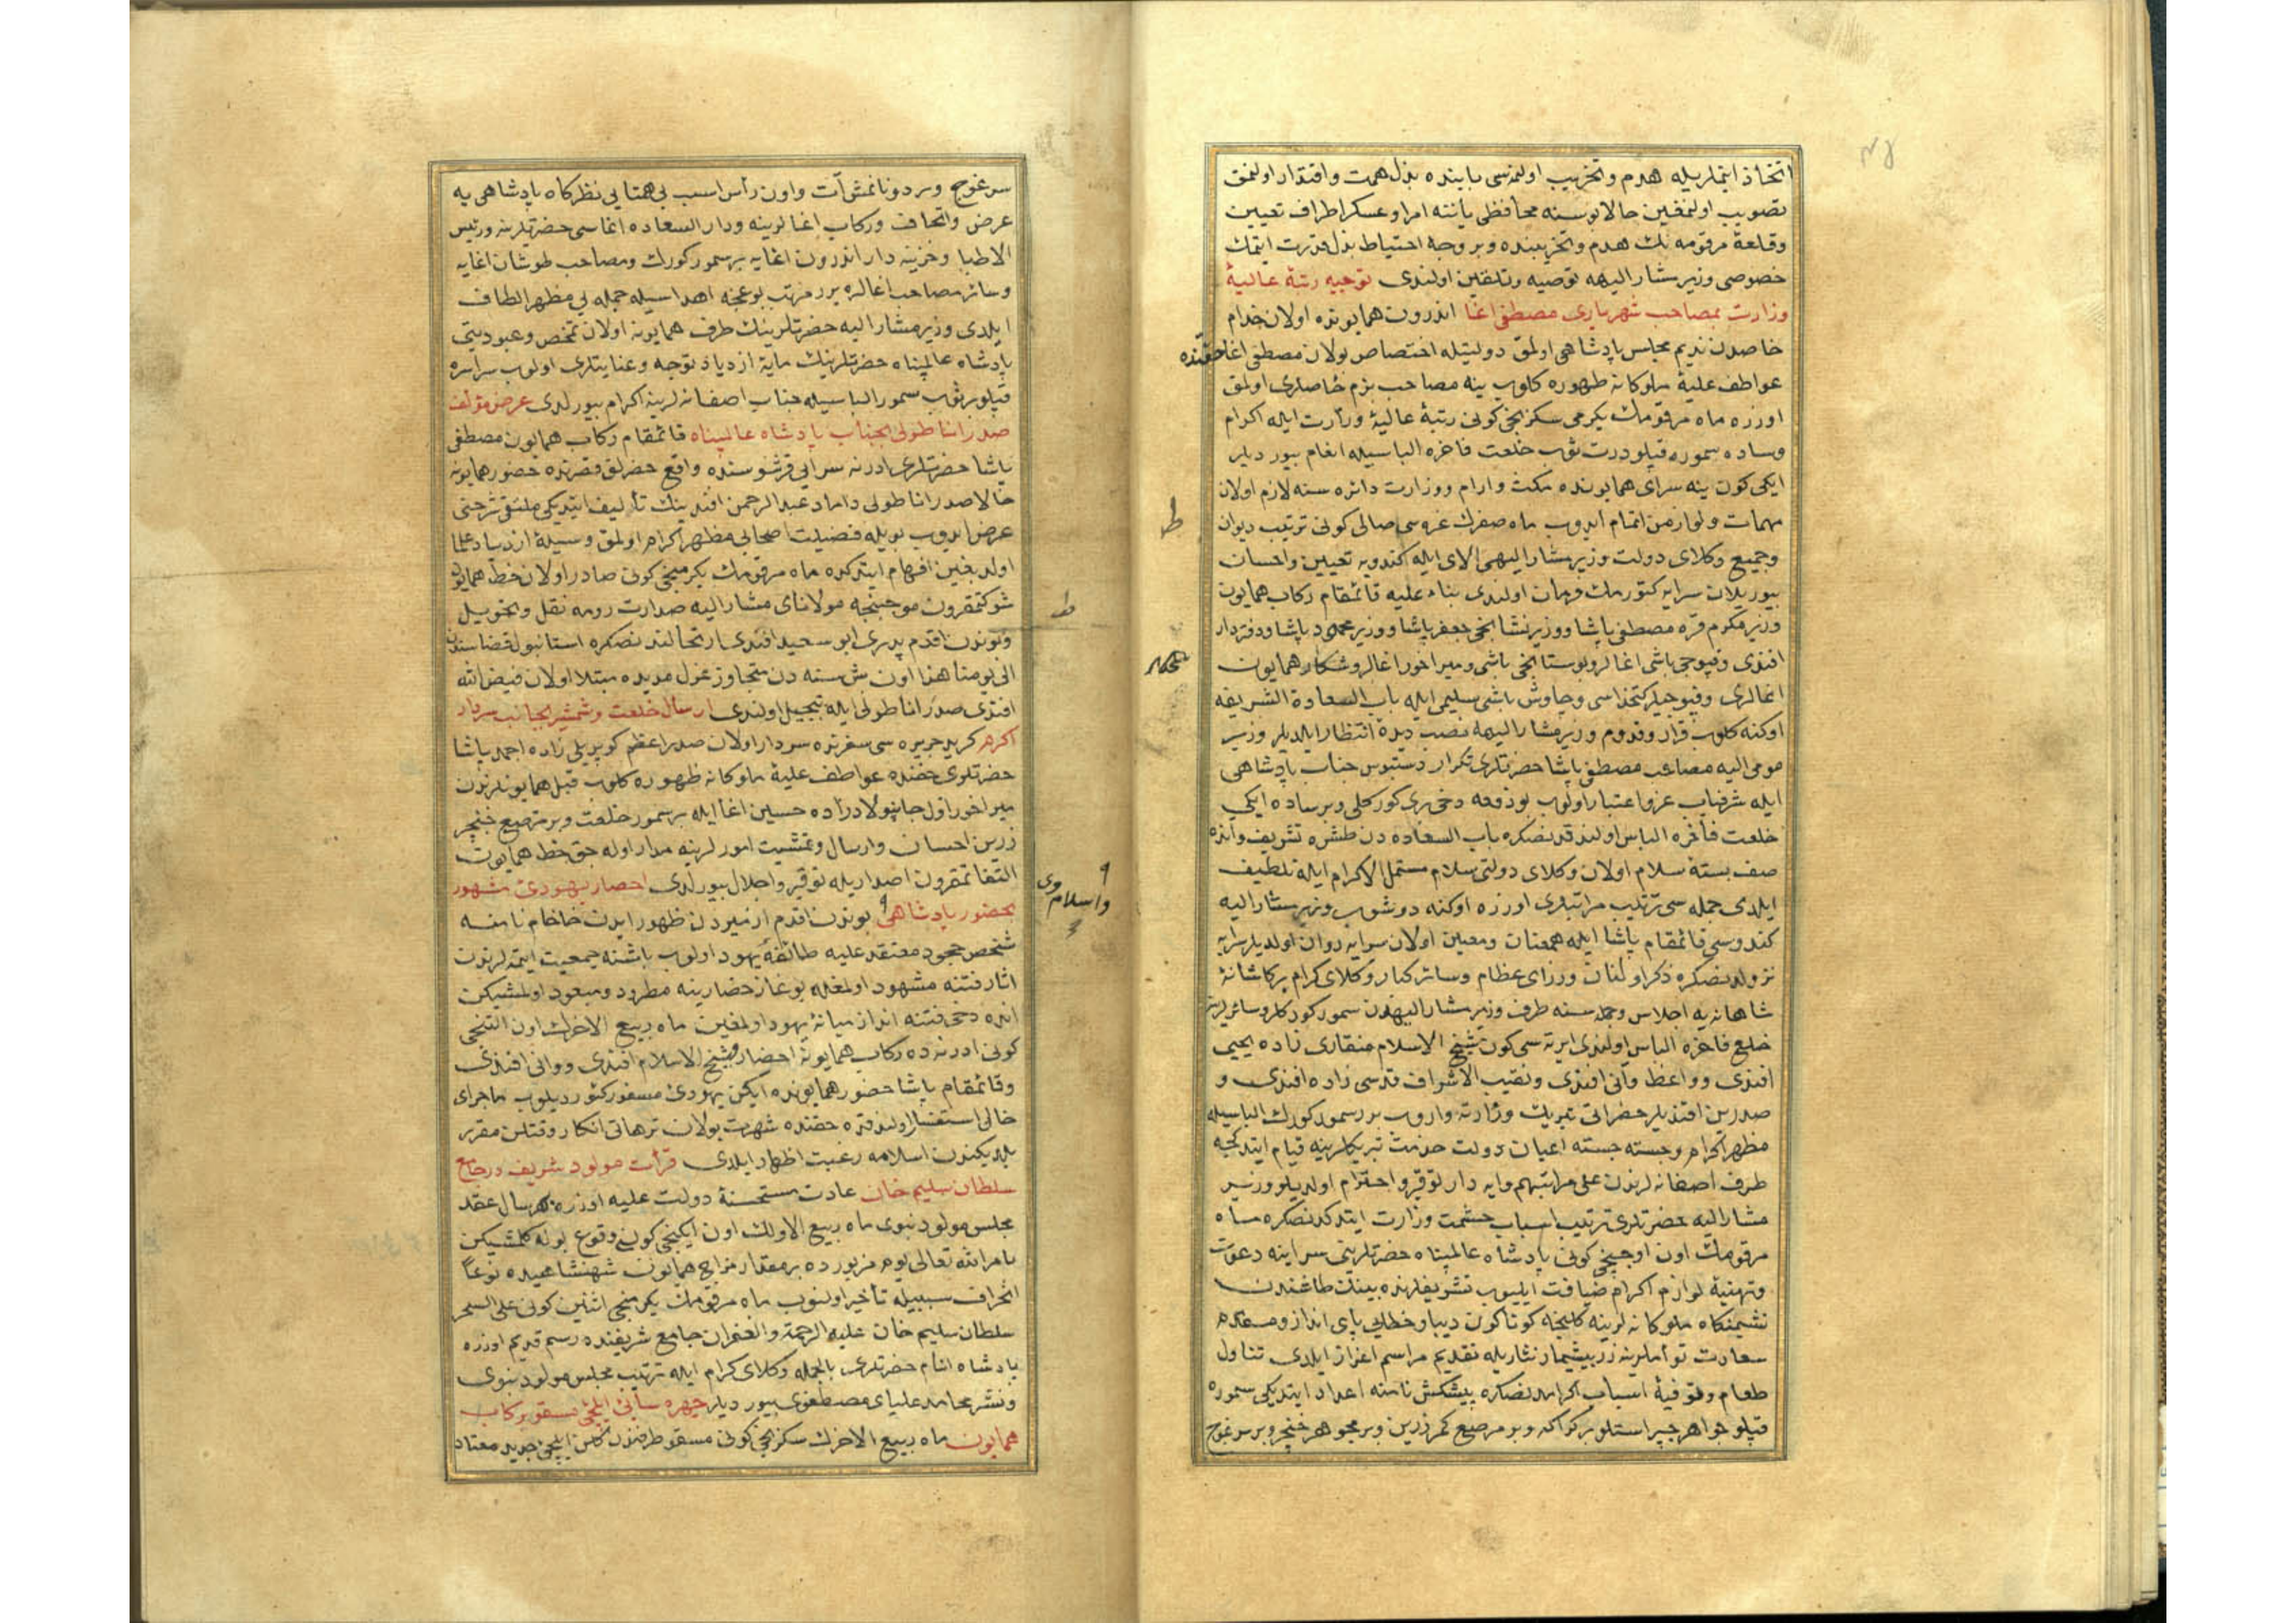 اتخاذ ایتملریله هدم وتخریب اولنمسی بابنده بذل همت واقتدار اولنمق
تصویب اولنمغین حالا بوسنه محافظی یاننه امرا وعسکر اطراف تعیین
وقلعهٔ مرقومه نك هدم وتخریبنده وبر وجه احتیاط بذل قدرت ایتمك
خصوصی وزیر مشار الیهه توصیه وتلقین اولندی توجیه رتبهٔ عالیهٔ
وزارت بمصاحب شهریاری مصطفی اغا اندرون همایونده اولان خدام
خاصدن ندیم مجلس پادشاهی اولمق دولتیله اختصاص بولان مصطفی اغا حقنده
عواطف علیهٔ ملوکانه ظهوره کلوب ینه مصاحب بزم خاصلری اولمق
اوزره ماه مرقومك یکرمی سکزنجی کونی رتبهٔ عالیهٔ وزارت ایله اکرام
وساده سموره قپلو درت ثوب خلعت فاخره الباسیله انعام بیوردیلر
ایکی کون ینه سرای همایونده مکث وارام ووزارت دائره سنه لازم اولان
مهمات ولوازمن اتمام ایدوب ماه صفرك غره سی صالی کونی ترتیب دیوان
وجمیع وکلای دولت وزیر مشار الیهی الای ایله کندویه تعیین واحسان
بیوریلان سرایه کتورمك فرمان اولندی بناء علیه قائمقام رکاب همایون
وزیر مکرم قره مصطفی پاشا ووزیر نشانجی جعفر پاشا ووزیر محمود پاشا ودفتردار
افندی وقپوجی باشی اغالر وبوستانجی باشی ومیر اخور اغالر وشکار همایون
اغالری وقپوجیلر کتخداسی وچاوش باشی سلیمی ایله باب السعادة الشریفه
اوکنه کلوب قرار وقدوم وزیر مشار الیهه نصب دیدهٔ انتظار ایلدیلر وزیر
مومی الیه مصاحب مصطفی پاشا حضرتلری تکرار دستبوس جناب پادشاهی
ایله شرفیاب عز واعتبار اولوب بو دفعه دخی بری کورکلی وبر ساده ایکی
خلعت فاخره الباس اولندقدنصکره باب السعاده دن طشره تشریف وانده
صف بستهٔ سلام اولان وکلای دولتی سلام مستمل الاکرام ایله تلطیف
ایلدی جمله سی ترتیب مراتبلری اوزره اوکنه دوشوب وزیر مشار الیه
کندوسی قائمقام پاشا ایله همعنان ومعین اولان سرایه روان اولدیلر سرایه
نزولدنصکره ذکر اولنان وزرای عظام وسائر کبار وکلای کرام بر کاشانهٔ
شاهانه یه اجلاس وجمله سنه طرف وزیر مشار الیهدن سمور کورکلر وسائرلرینه
خلع فاخره الباس اولندی ایرته سی کون شیخ الاسلام منقاری زاده یحیی
افندی وواعظ وانی افندی ونقیب الاشراف قدسی زاده افندی و
صدرین افندیلر حضراتی تبریك وزارته واروب برر سمور کورك الباسیله
مظهر اکرام وجسته جسته اعیان دولت خدمت تبریکلرینه قیام ایتدکجه
طرف اصفانه لرندن علی مراتبهم وایه دار توقیر واحترام اولدیلر وزیر
مشار الیه حضرتلری ترتیب اسباب حشمت وزارت ایتدکدنصکره ماه
مرقومك اون اوچنجی کونی پادشاه عالمپناه حضرتلرینی سراینه دعوت
وتهیئهٔ لوازم اکرام ضیافت ایلیوب تشریفلرنده بینك طاشندن
نشیمنکاه ملوکانه لرینه کلنجه کوناکون دیبا وخطایی پای انداز ومقدم
سعادت توأملرینه زر بیشمار نثاریله تقدیم مراسم اعزاز ایلدی تناول
طعام وتوفیهٔ اسباب اکرامدنصکره پیشکش نامنه اعداد ایتدیکی سموره
قپلو جواهر چپراستلو بر کراکه وبر مرصع کمر زرین وبر مجوهر خنجر وبر سرغوج
سرغوج وبر دونانمش آت واون رأس اسب بی همتایی نظرکاه پادشاهی یه
عرض واتحاف ورکاب اغالرینه ودار السعاده اغاسی حضرتلرینه ورئیس
الاطبا وخزینه دار اندرون اغایه بر سمور کورك ومصاحب طوشان اغایه
وسائر مصاحب اغالره برر مرتب بوغچه اهداسیله جمله یی مظهر الطاف
ایلدی وزیر مشار الیه حضرتلرینك طرف همایونه اولان تخصص وعبودیتی
پادشاه عالمپناه حضرتلرینك مایهٔ ازدیاد توجه وعنایتلری اولوب سراسره
قپلو بر ثوب سمور الباسیله جناب اصفانه لرینه اکرام بیورلدی عرض مؤلف
صدر اناطولی بجناب پادشاه عالمپناه قائمقام رکاب همایون مصطفی
پاشا حضرتلری ادرنه سرایی قرشوسنده واقع خضرلق قصرنده حضور همایونه
حالا صدر اناطولی داماد عبد الرحمن افندینك تألیف ایتدیکی ملتقی شرحنی
عرض ایدوب بویله فضیلت اصحابی مظهر اکرام اولمق وسیلهٔ ازدیاد علما
اولدیغین افهام ایتدکده ماه مرقومك یکرمنجی کونی صادر اولان خط همایون
شوکتمقرون موجبنجه مولانای مشار الیه صدارت رومه نقل وتحویل
وبوندن اقدم پدری ابو سعید افندی ارتحالندنصکره استانبول قضاسندن
الی یومنا هذا اون بش سنه دن متجاوز عزل مدیده مبتلا اولان فیض الله
افندی صدر اناطولی ایله تبجیل اولندی ارسال خلعت وشمشیر بجانب سردار
اکرم کرید جزیره سی سفرنده سردار اولان صدر اعظم کوپریلی زاده احمد پاشا
حضرتلری حقنده عواطف علیهٔ ملوکانه ظهوره کلوب قبل همایونلرندن
میر اخور اول جانبولاد زاده حسین اغا ایله بر سمور خلعت وبر مرصع خنجر
زرین احسان وارسال وتمشیت امورلرینه مدار اوله جق خط همایون
التفاتمقرون اصداریله توقیر واجلال بیورلدی احضار یهودی مشهور
بحضور پادشاهی بوندن اقدم ازمیردن ظهور ایدن خاخام نامنه
شخص جحود معتقد علیه طائفهٔ یهود اولوب باشنه جمعیت ایتمه لرندن
اثار فتنه مشهود اولمغله بوغاز حصارینه مطرود ومبعود اولمشیکن
انده دخی فتنه انداز میانهٔ یهود اولمغین ماه ربیع الاخرك اون التنجی
کونی ادرنه ده رکاب همایونه احضار وشیخ الاسلام افندی ووانی افندی
وقائمقام پاشا حضور همایونده ایکن یهودئ مسفور کتوردیلوب ماجرای
حالی استفسار اولندقده حقنده شهرت بولان ترهاتی انکار وقتلن مقرر
بلدیکندن اسلامه رغبت اظهار ایلدی قرأت مولود شریف در جامع
سلطان سلیم خان عادت مستحسنهٔ دولت علیه اوزره هر سال عقد
مجلس مولود نبوی ماه ربیع الاولك اون ایکنجی کونی وقوع بولنه کلمشیکن
بامر الله تعالی یوم مزبورده بر مقدار مزاج همایون شهنشاهیده نوعا
انحراف سببیله تأخیر اولنوب ماه مرقومك یکرمنجی اثنین کونی علی السحر
سلطان سلیم خان علیه الرحمة والغفران جامع شریفنده رسم قدیم اوزره
پادشاه انام حضرتلری بالجمله وکلای کرام ایله ترتیب مجلس مولود نبوی
ونشر محامد علیای مصطفوی بیوردیلر چهره سایئ ایلچئ مسقو برکاب
همایون ماه ربیع الاخرك سکزنجی کونی مسقو طرفندن کلن ایلچئ جدید معتاد